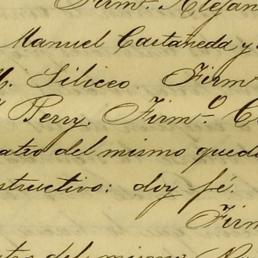 Firmo. Alejan
Manuel Castañeda y
M. Siliceo. Firm
Perry. Firmo. C
atro del mismo qued
structivo: doy fé.
Firm
del mismo